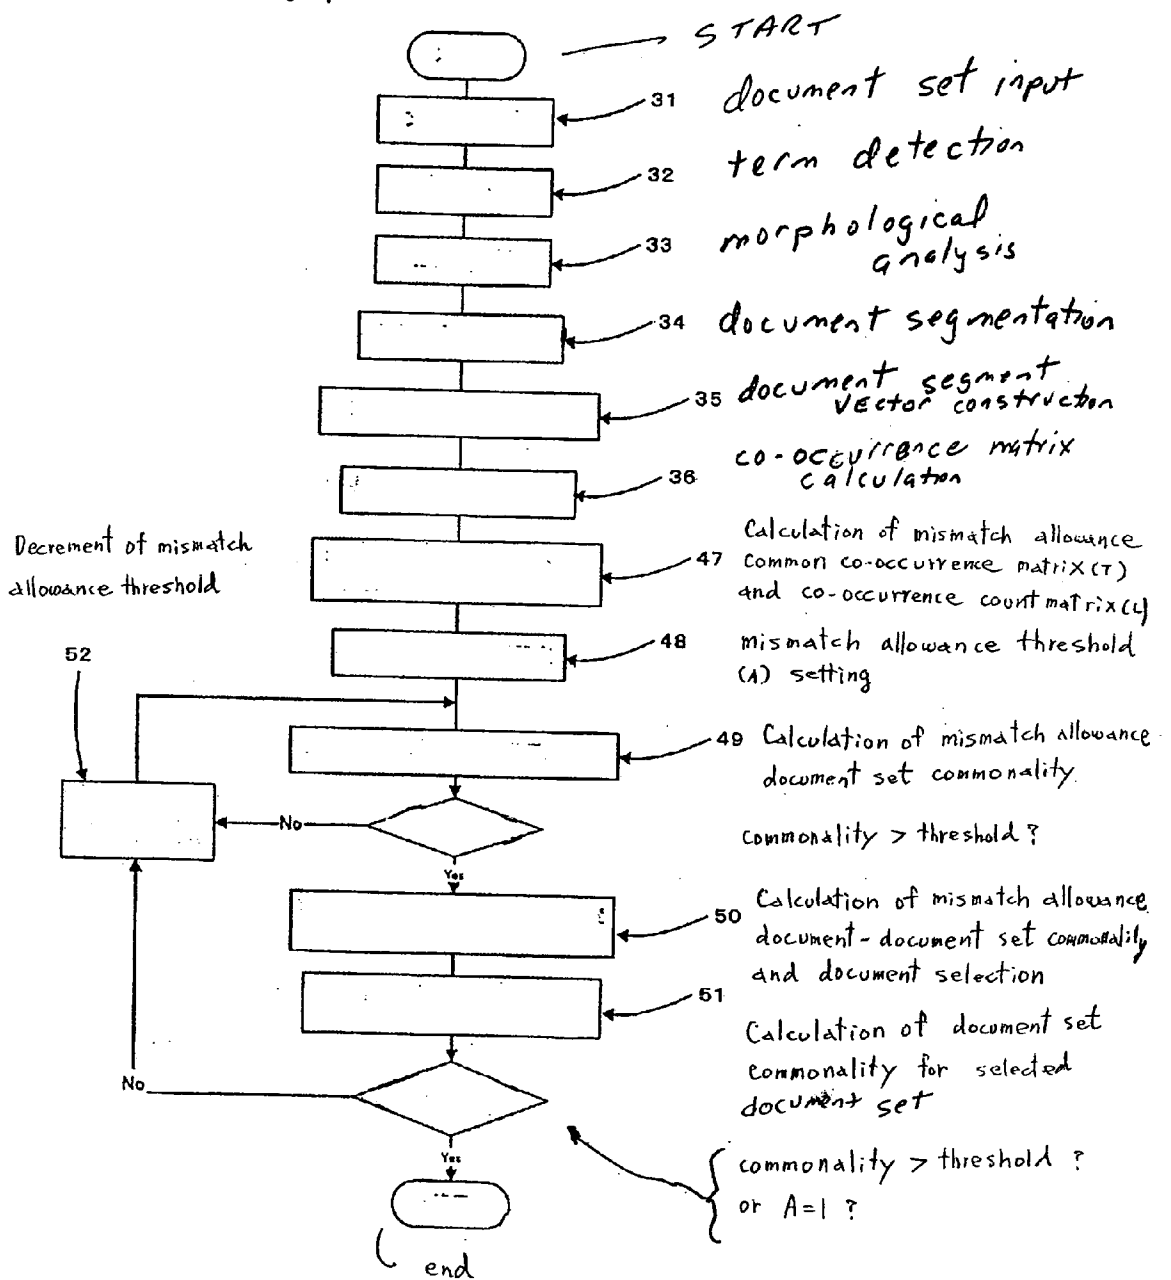 START
31 document set input
32 term detection
33 morphological
analysis
34 document segmentation
35 document segment
vector construction
36 co-occurrence matrix
calculation
Decrement of mismatch
allowance threshold
47 Calculation of mismatch allowance
common co-occurrence matrix(T)
and co-occurrence count matrix(L)
48 mismatch allowance threshold
(A) setting
52
49 Calculation of mismatch allowance
document set commonality
No
commonality > threshold ?
Yes
50 Calculation of mismatch allowance
document-document set commonality
and document selection
51
Calculation of document set
commonality for selected
document set
No
commonality > threshold ?
or A=1 ?
Yes
end